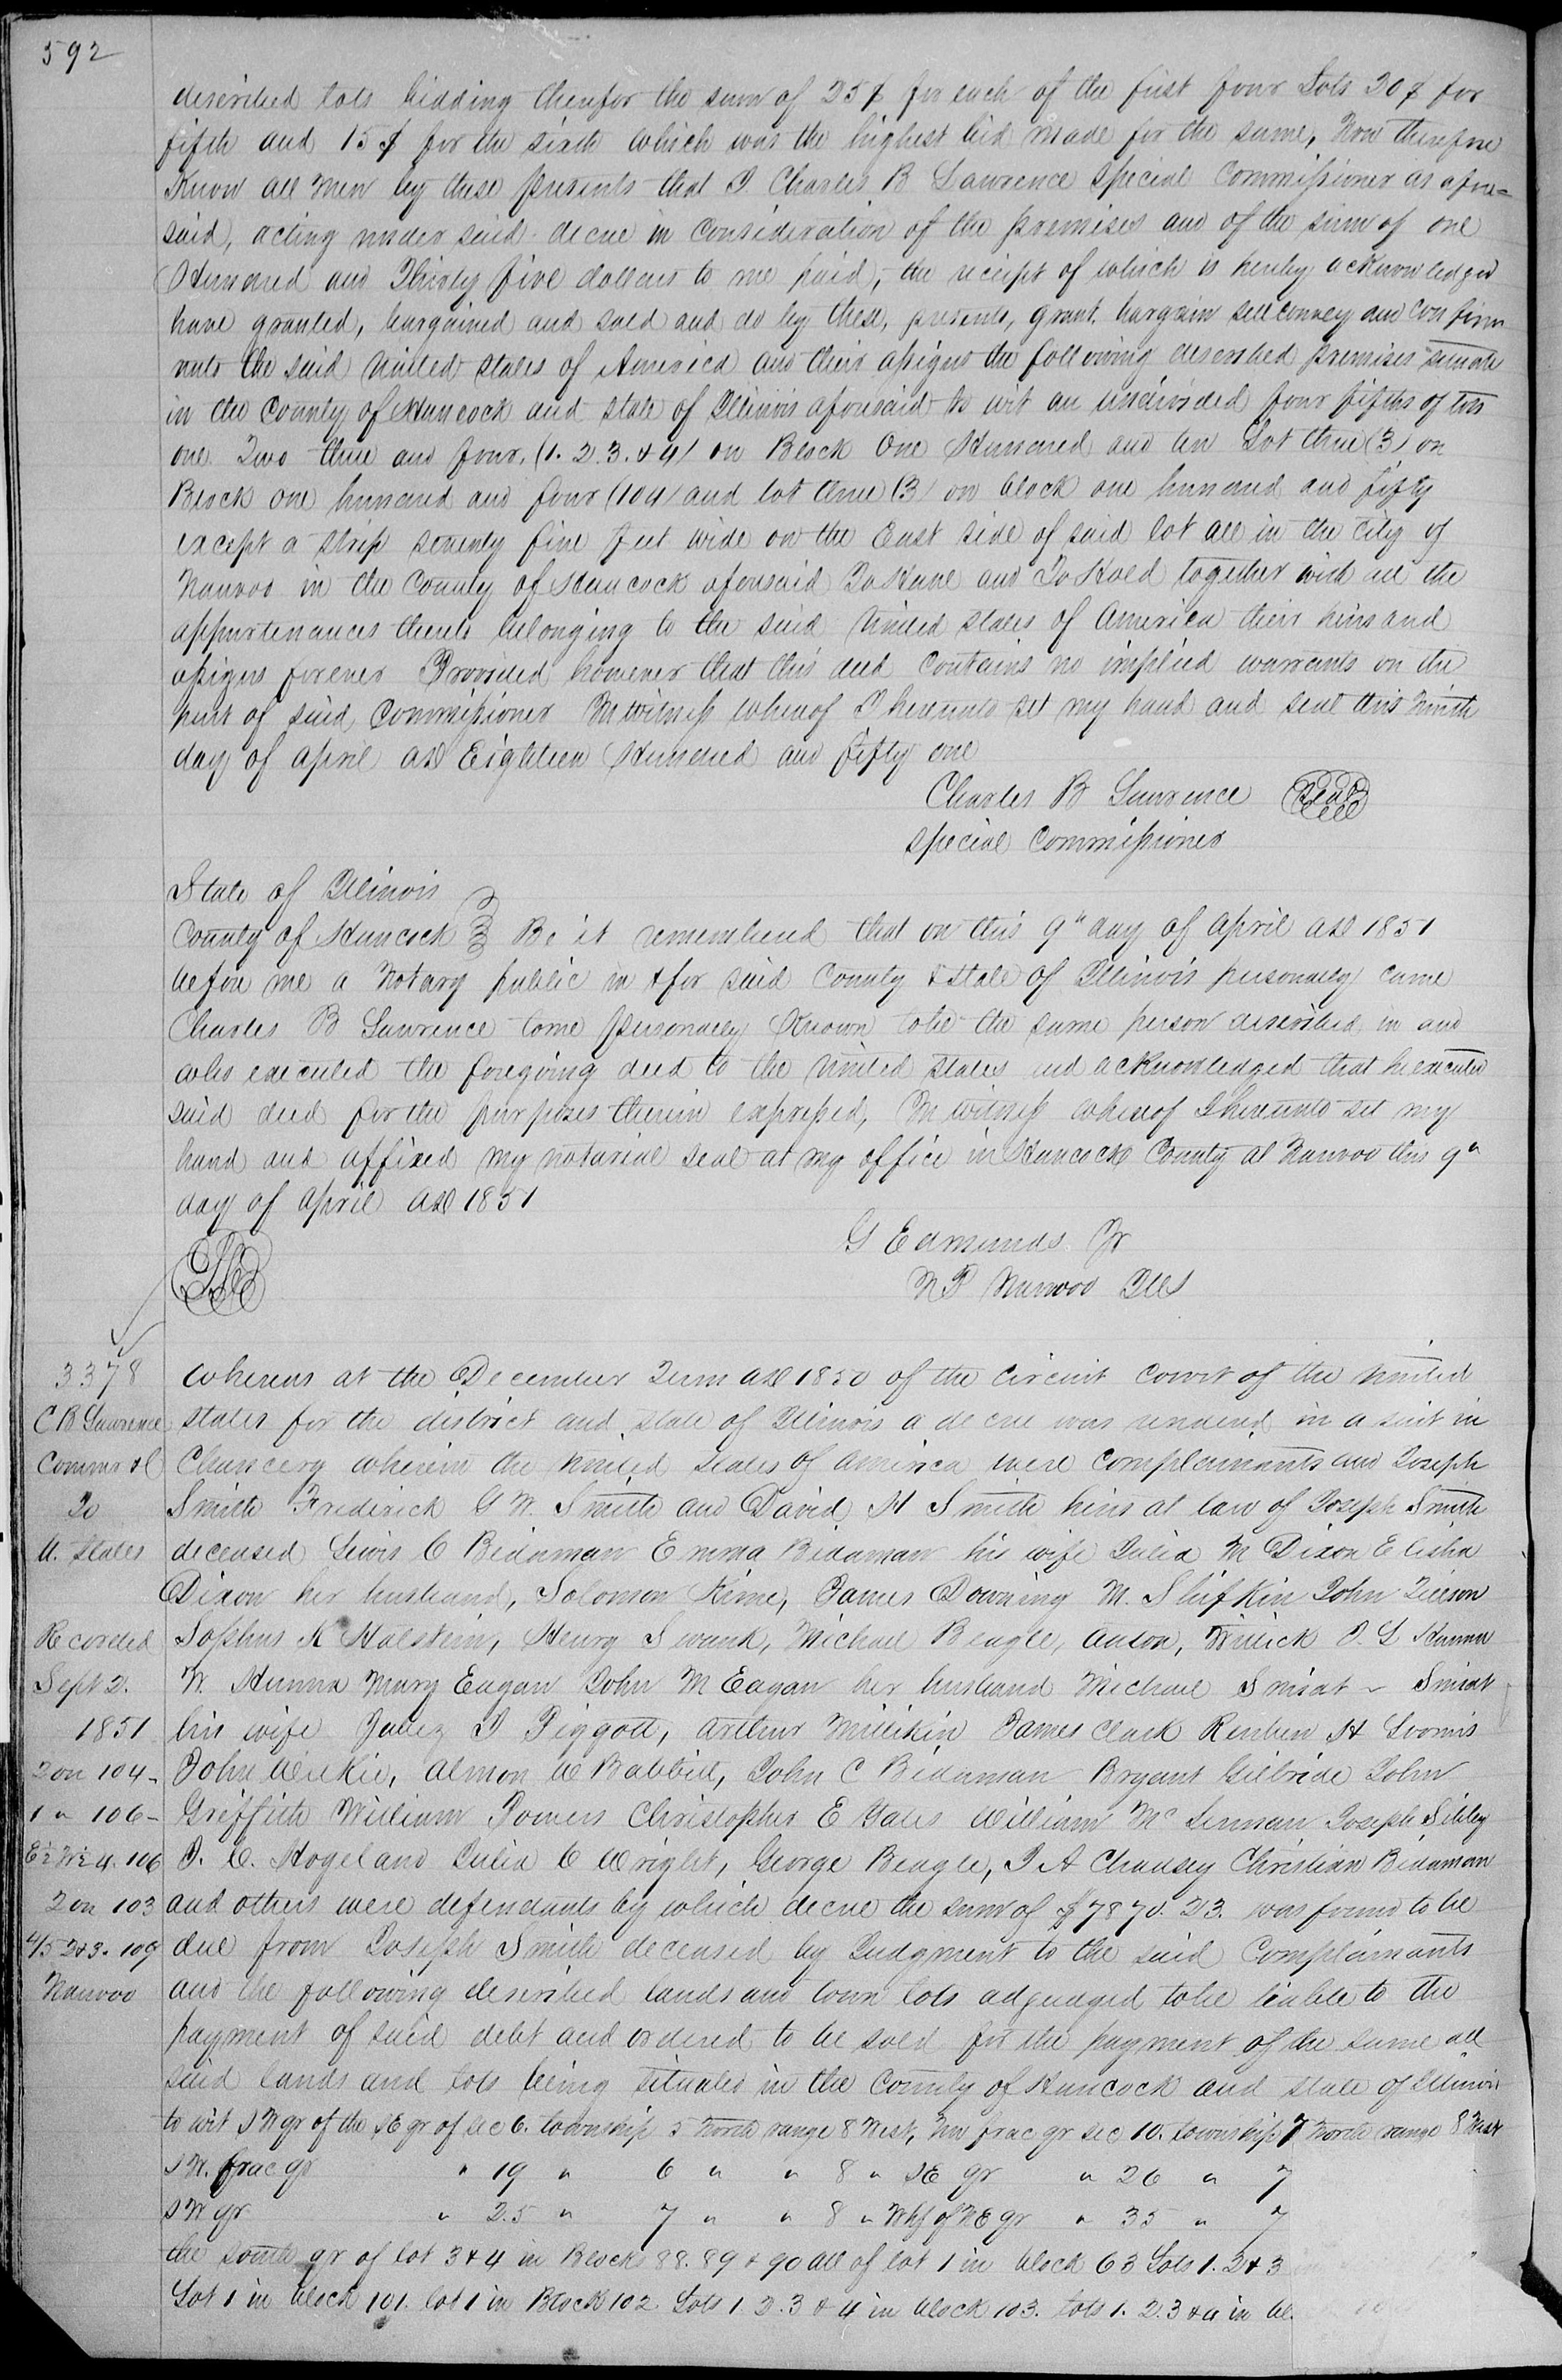 592
described lots bidding therefor the sum of 25 $ for each of the first four Lots 20 $ for
fifth and 15 $ for the sixth which was the highest bid made for the same, Now therefore
Know all men by these presents that I Charles B Lawrence Special Commissioner as afore=
said, acting under said decree in consideration of the premises and of the sum of one
Hundred and Thirty five dollars to me paid, the reciept of which is hereby acknowledged
have granted, bargained and sold and do by these, presents, grant. bargain sell convey and confirm
unto the said United States of America and their assigns the following described premises situate
in the County of Hancock and state of Illinois aforesaid to wit an undivided four fifths of lots
one. Two three and four. (1. 2. 3. & 4) on Block One Hundred and ten Lot three (3) on
Block one hundred and four (104) and lot three (3) on block one hundred and fifty
except a strip seventy five feet wide on the East side of said lot all in the city of
Nauvoo in the County of Hancock aforesaid To Have and To Hold together with all the
appurtenances thereto belonging to the said United States of America their heirs and
assigns forever Provided however that this deed contains no implied warrants on the
part of said Commissioner In witness whereof I hereunto set my hand and seal this Ninth
day of April AD Eighteen Hundred and fifty one
Charles B Lawrence Seal
Special Commissioner
State of Illinois
County of Hancock Be it remembered that on this 9" day of April AD 1851
before me a Notary public in & for said County & State of Illinois personally came
Charles B Lawrence to me personally Known to be the same person described in and
who executed the foregoing deed to the United States and acknowledged that he executed
said deed for the purposes therein expressed, In witness whereof I hereunto set my
hand and affixed my notarial seal at my office in Hancock County at Nauvoo this 9"
day of April AD 1851
G Edmunds Jr
N P Nauvoo Ills
3378
C B Lawrence
Commr &c
To
U. States
Recorded
Sept 2.
1851
2 on 104-
1 " 106-
E½ W½ 4. 106
2 on 103
4/5 2&3. 109
Nauvoo
Whereas at the December Term AD 1850 of the Circuit Court of the United
States for the district and state of Illinois a decree was rendered in a suit in
Chancery wherein the United States of America were Complainants and Joseph
Smith Frederick G W. Smith and David H Smith heirs at law of Joseph Smith
deceased Lewis C Bidaman Emma Bidaman his wife Julia M Dixon Elisha
Dixon her husband, Solomon Kime, James Downing M. Slifkin John Tilson
Sophus K Halstein, Henry Swank, Michael Beagle, Anton, Willick O. L Hanna
W. Hanna Mary Eagan John M Eagan her husband Michael Smiat - Smiat
his wife Jabez I Piggott, Arthur Millikin James Clark Reuben H Loomis
John Wilkie, Almon W Babbitt, John C Bidaman Bryant Gilbride John
Griffith William Powers Christopher E Yates William McLennan Joseph Sibley
D. C. Hogeland Julia C Wright, George Beagle, I A Chausey Christian Bidaman
and others were defendants by which decree the sum of $7870. 23. was found to be
due from Joseph Smith deceased by Judgment to the said Complainants
and the following described lands and town lots adjudged to be liable to the
payment of said debt and ordered to be sold for the payment of the same all
said lands and lots being situated in the County of Hancock and state of Illinois
to wit S W qr of the SE qr of sec 6. township 5 North range 8 West, NW frac qr sec 10. township 7 North range 8 West
S W. frac qr " 19 " 6 " " 8 " SE qr " 26 " 7
S W qr " 25 " 7 " " 8 " W hf of NE qr " 35 " 7
the south qr of lot 3 & 4 in Block 88. 89 & 90 all of lot 1 in block 63 Lots 1. 2 & 3
Lot 1 in block 101. lot 1 in Block 102. Lots 1. 2. 3 & 4 in block 103. lots 1. 2. 3 & 4 in bl.